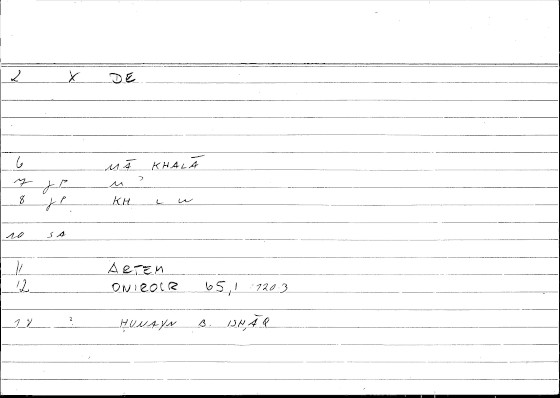 2 X DE
6 MĀ KHALĀ
7 M ?
8 KH L W
10 SA
11 ARTEM
12 ONIROCR 65,1 1203
: HUNAYN B. ISHĀQ